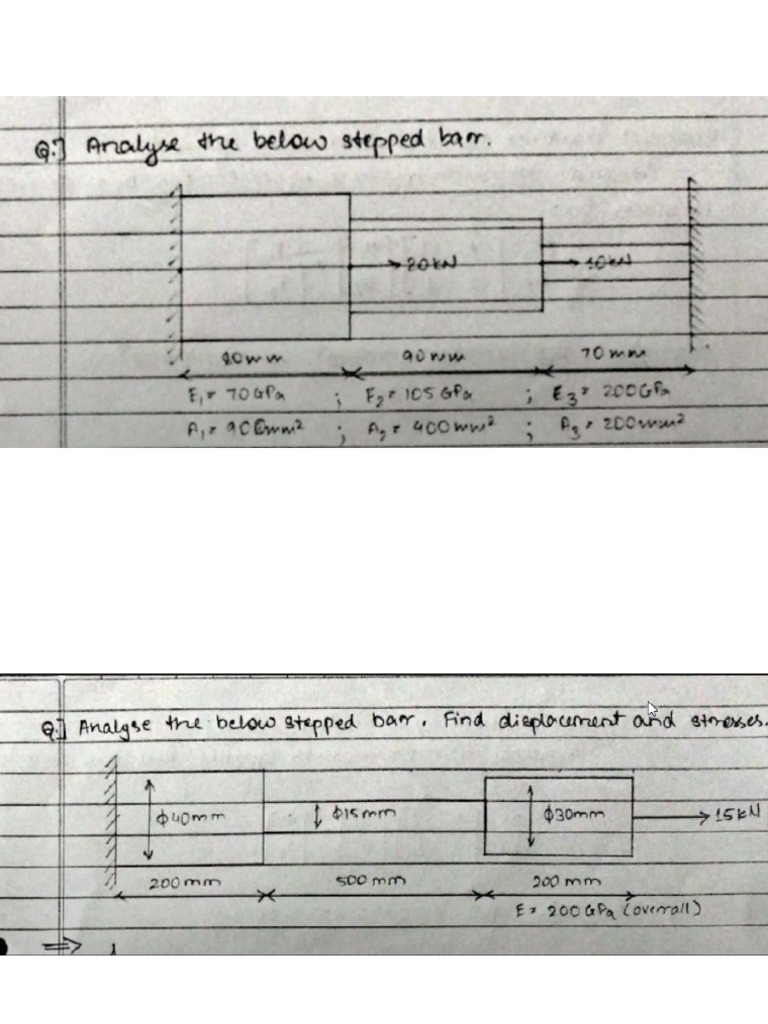 Q.] Analyse the below stepped barr.
20kN 10kN
80mm 90mm 70mm
E₁ = 70GPa ; E₂ = 105GPa ; E₃ = 200GPa
A₁ = 900mm² ; A₂ = 400mm² ; A₃ = 200mm²
Q.] Analyse the below stepped barr. Find displacement and stresses.
ϕ40mm ϕ15mm ϕ30mm 15kN
200mm 500mm 200mm
E = 200GPa (overall)
⇒